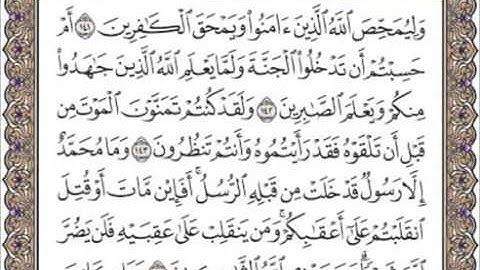 وَلِيُمَحِّصَ ٱللَّهُ ٱلَّذِينَ ءَامَنُوا۟ وَيَمْحَقَ ٱلْكَٰفِرِينَ ١٤١ أَمْ
حَسِبْتُمْ أَن تَدْخُلُوا۟ ٱلْجَنَّةَ وَلَمَّا يَعْلَمِ ٱللَّهُ ٱلَّذِينَ جَٰهَدُوا۟
مِنكُمْ وَيَعْلَمَ ٱلصَّٰبِرِينَ ١٤٢ وَلَقَدْ كُنتُمْ تَمَنَّوْنَ ٱلْمَوْتَ مِن
قَبْلِ أَن تَلْقَوْهُ فَقَدْ رَأَيْتُمُوهُ وَأَنتُمْ تَنظُرُونَ ١٤٣ وَمَا مُحَمَّدٌ
إِلَّا رَسُولٌ قَدْ خَلَتْ مِن قَبْلِهِ ٱلرُّسُلُ ۚ أَفَإِي۟ن مَّاتَ أَوْ قُتِلَ
ٱنقَلَبْتُمْ عَلَىٰٓ أَعْقَٰبِكُمْ ۚ وَمَن يَنقَلِبْ عَلَىٰ عَقِبَيْهِ فَلَن يَضُرَّ